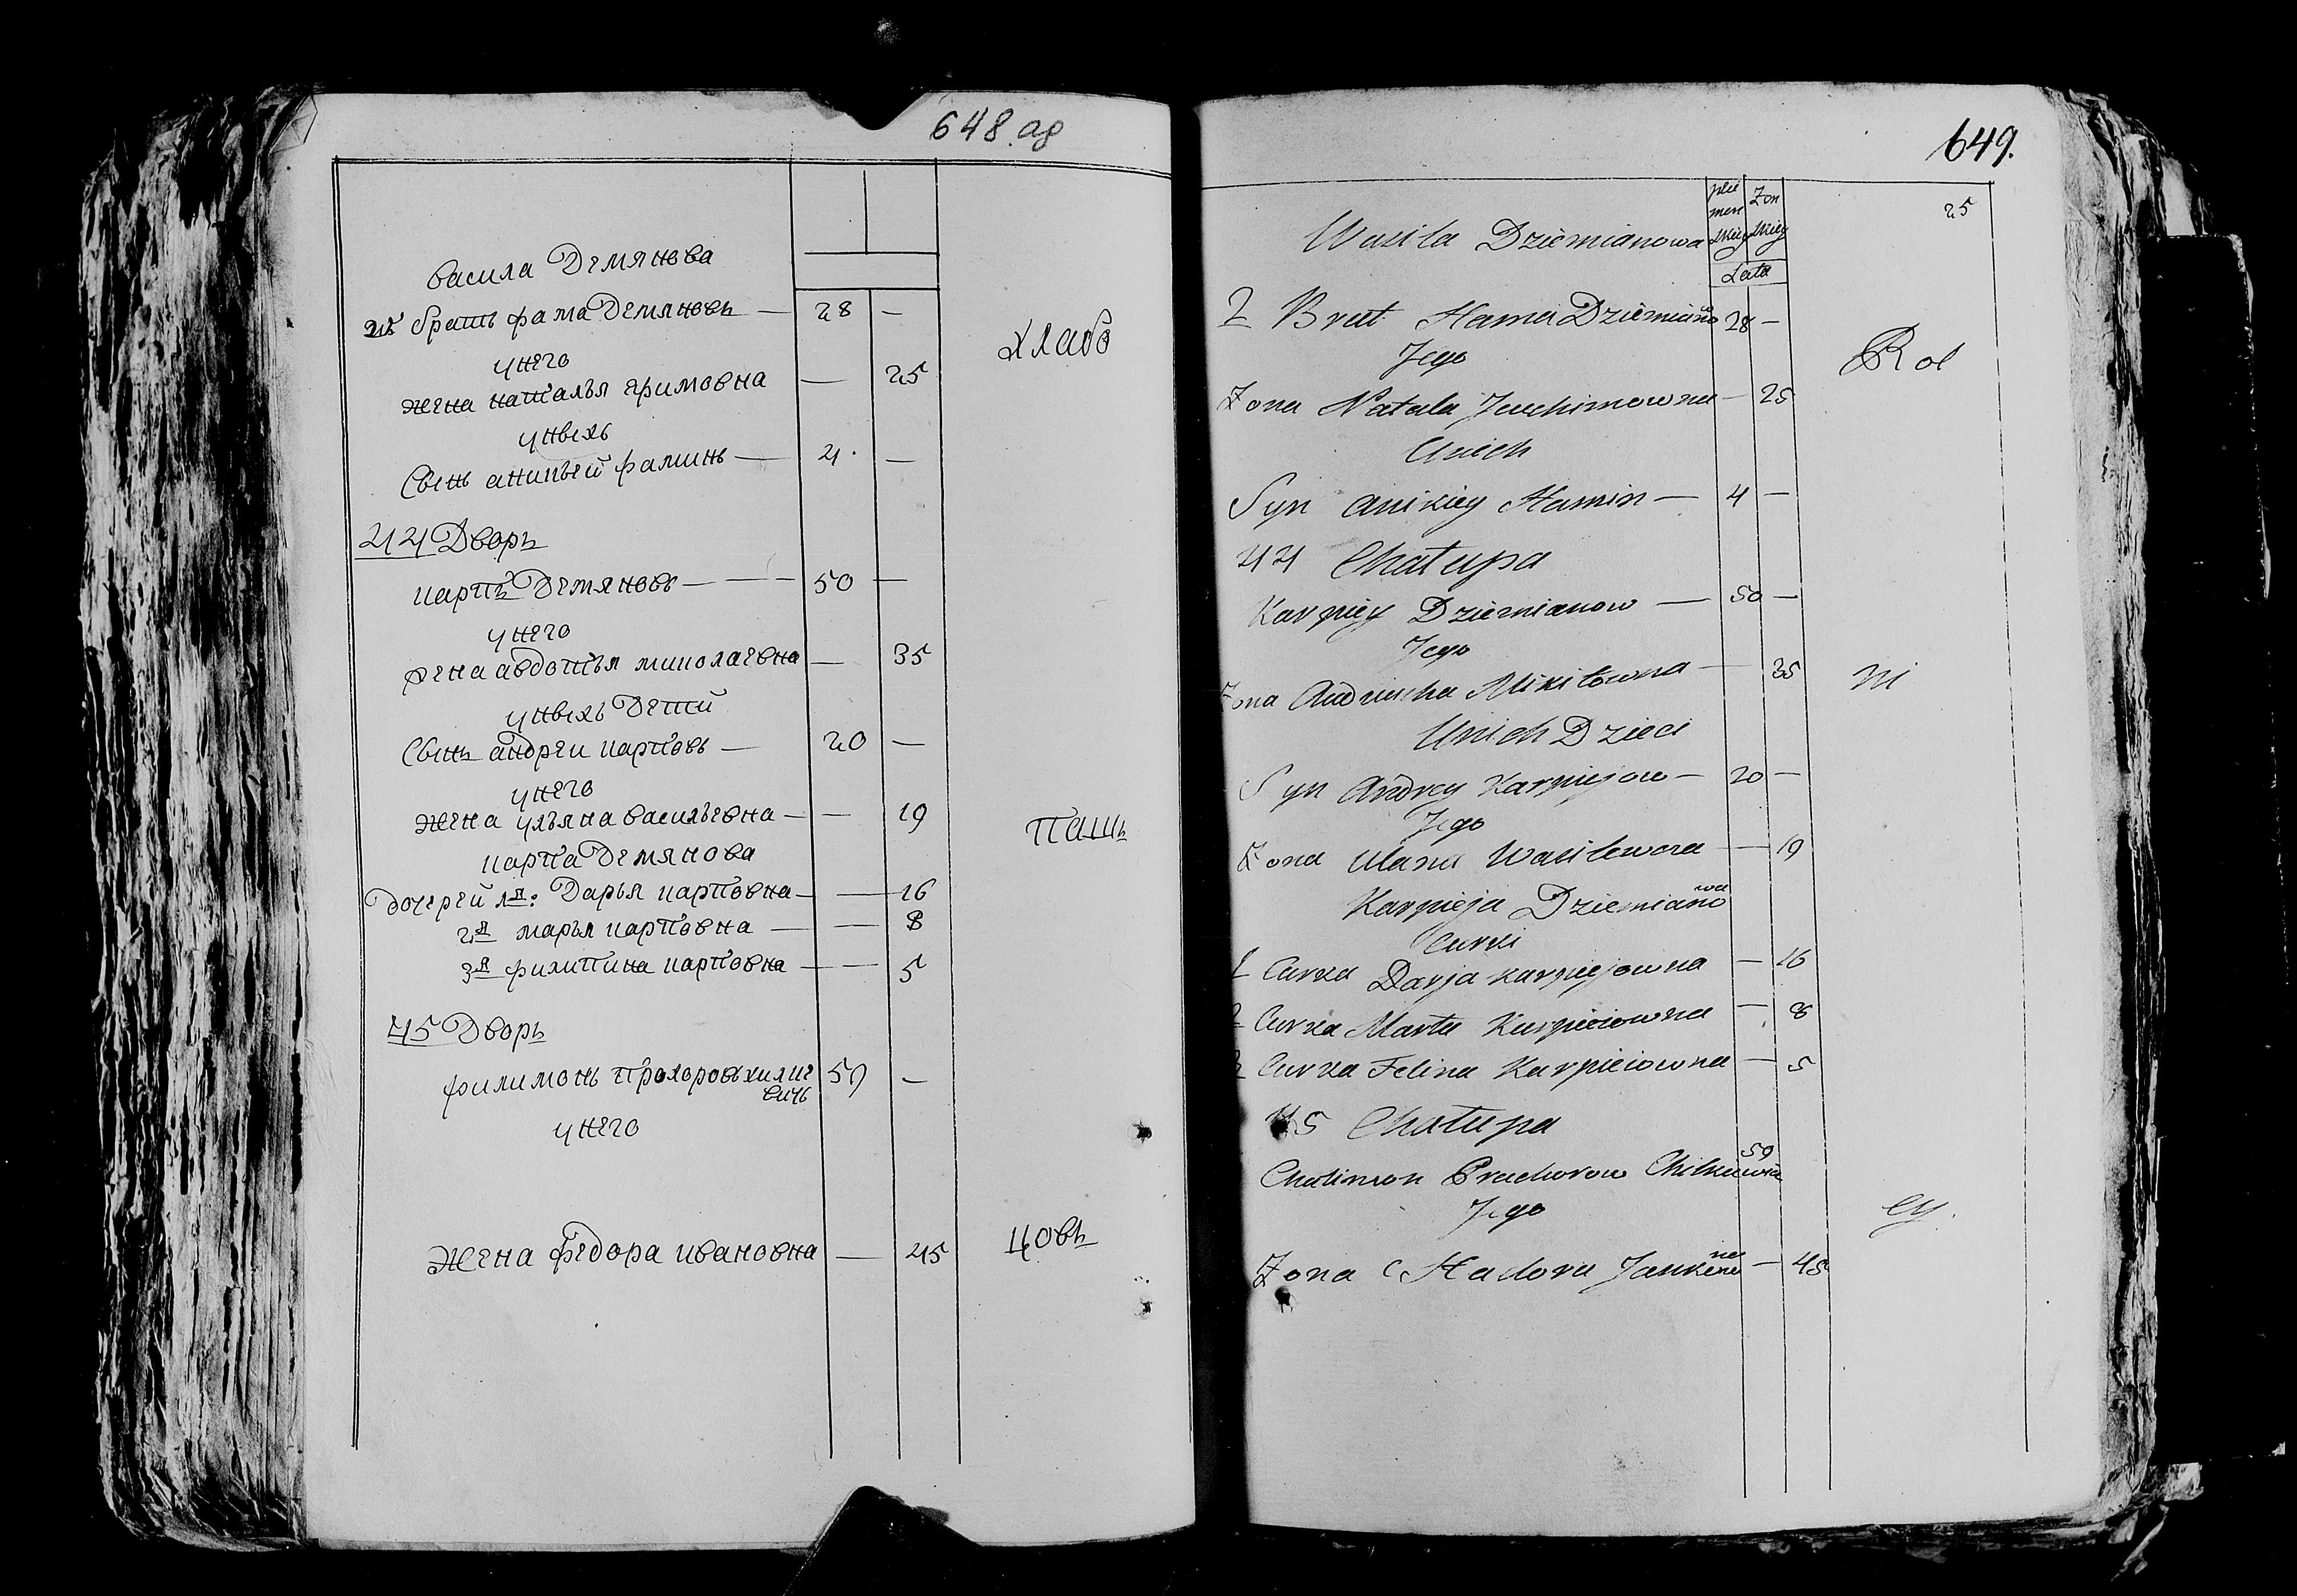 648 об
васила Демянова
2й братъ фама Демяновъ — 28 —
унего
жена наталья ефимовна — 25
унвихъ
Свинъ аникей фаминъ — 4. —
хлабо
44 Дворъ
карпъ Демяновъ — 50 —
унего
жена авдотья миколаевна — 35
унвихъ Детей
Свинъ андреи карповъ — 20 —
унего
жена ульяна васильевна — — 19
карпа Демянова
дочерей 1я: Дарья карповна — — 16
2я марья карповна — — 8
3я филипина карповна — — 5
пашъ
45 Дворъ
филимонъ прохоровъ хилке 59 —
вичь
унего
жена федора ивановна — 45
цовъ
649.
25
Wasila Dziemianowa
Zon
Lata
2 Brat Hama Dziemiano 28 —
Jego
Rol
Zona Natala Jauchimowna — 25
Unich
Syn Anikiey Hamin — 4 —
44 Chatupa
Karpiey Dziemianow — 50 —
Jego
Zona Mikitowna — 35
ni
Unich Dzieci
Syn Andrey Karpiejow — 20 —
Jego
Zona Ulana Wasilewna — 19
Karpieja Dziemianowa
Curki
1 Curka Darja Karpiejowna — 16
2 Curka Marta Karpieiowna — 8
3 Curka Felina Karpieiowna — 5
45 Chatupa
Chalimon Prachorow 59
Jego
cy.
Zona Hadora — 45